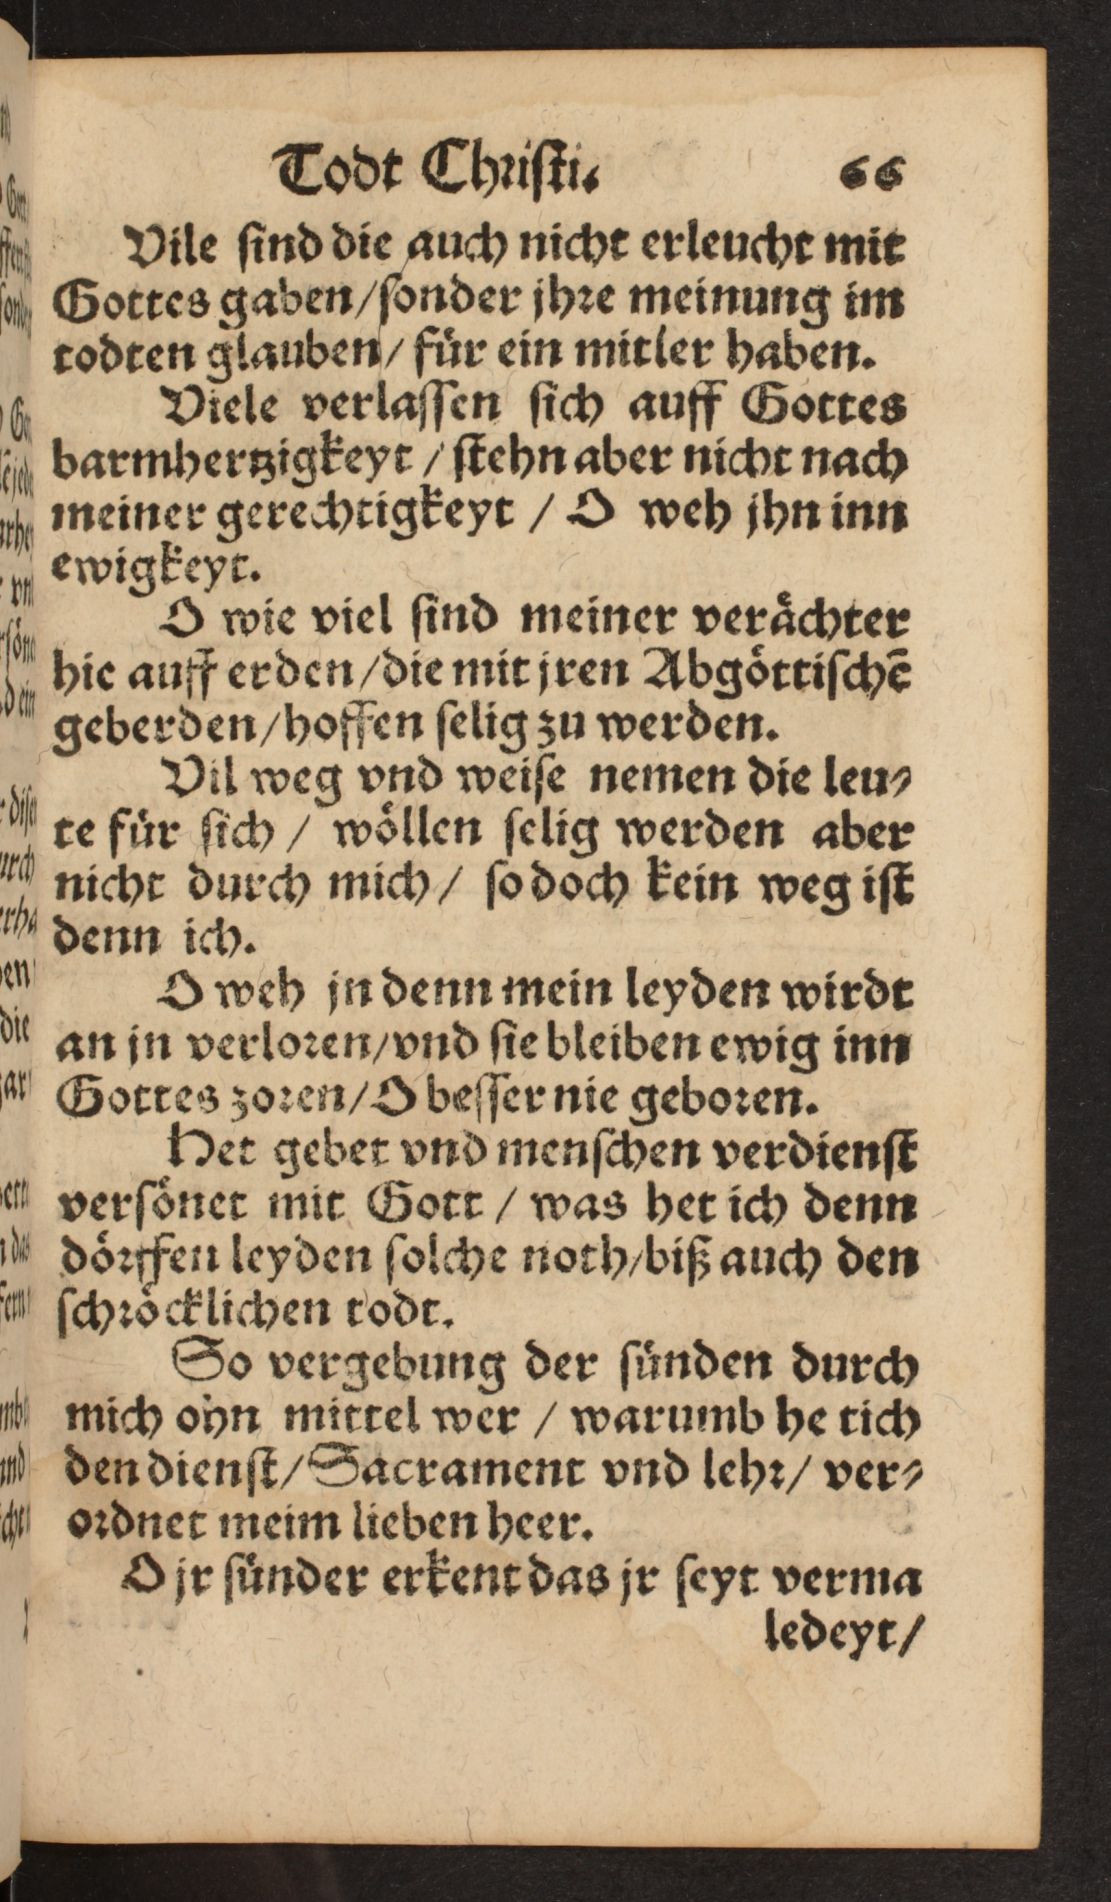 Todt Chriſti. 66
Vile ſind die auch nicht erleucht mit
Gottes gaben/ſonder jhre meinung im
todten glauben/ für ein mitler haben.
Viele verlaſſen ſich auff Gottes
barmhertzigkeyt / ſtehn aber nicht nach
meiner gerechtigkeyt / O weh jhn inn
ewigkeyt.
O wie viel ſind meiner verächter
hie auff erden/die mit jren Abgöttiſchē
geberden/hoffen ſelig zu werden.
Vil weg vnd weiſe nemen die leu⸗
te für ſich / wöllen ſelig werden aber
nicht durch mich/ ſo doch kein weg iſt
denn ich.
O weh jn denn mein leyden wirdt
an jn verloren/vnd ſie bleiben ewig inn
Gottes zoren/O beſſer nie geboren.
Het gebet vnd menſchen verdienſt
verſönet mit Gott / was het ich denn
dörffen leyden ſolche noth/biß auch den
ſchröcklichen todt.
So vergebung der ſünden durch
mich ohn mittel wer / warumb he tich
den dienſt/Sacrament vnd lehr/ ver⸗
ordnet meim lieben heer.
O jr ſünder erkent das jr ſeyt verma
ledeyt/